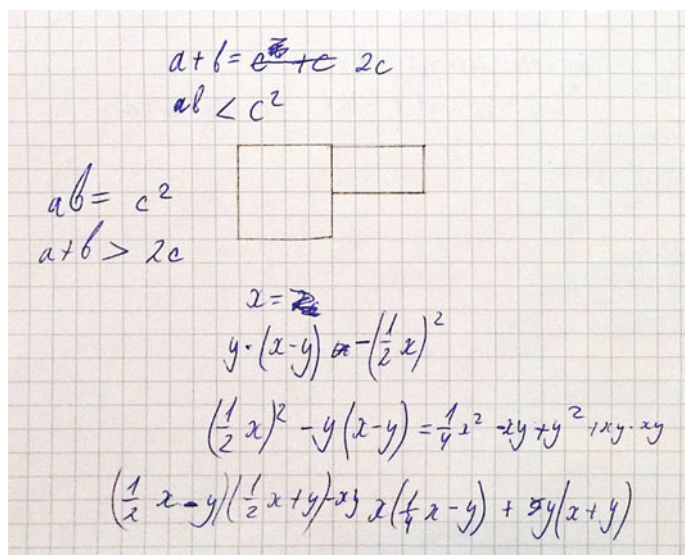 a + b = 2c
ab < c²
ab = c²
a + b > 2c
x =
y · (x - y) - (1/2 x)²
(1/2 x)² - y(x - y) = 1/4 x² - xy + y² + xy - xy
(1/2 x - y)(1/2 x + y) - xy x(1/4 x - y) + y(x + y)